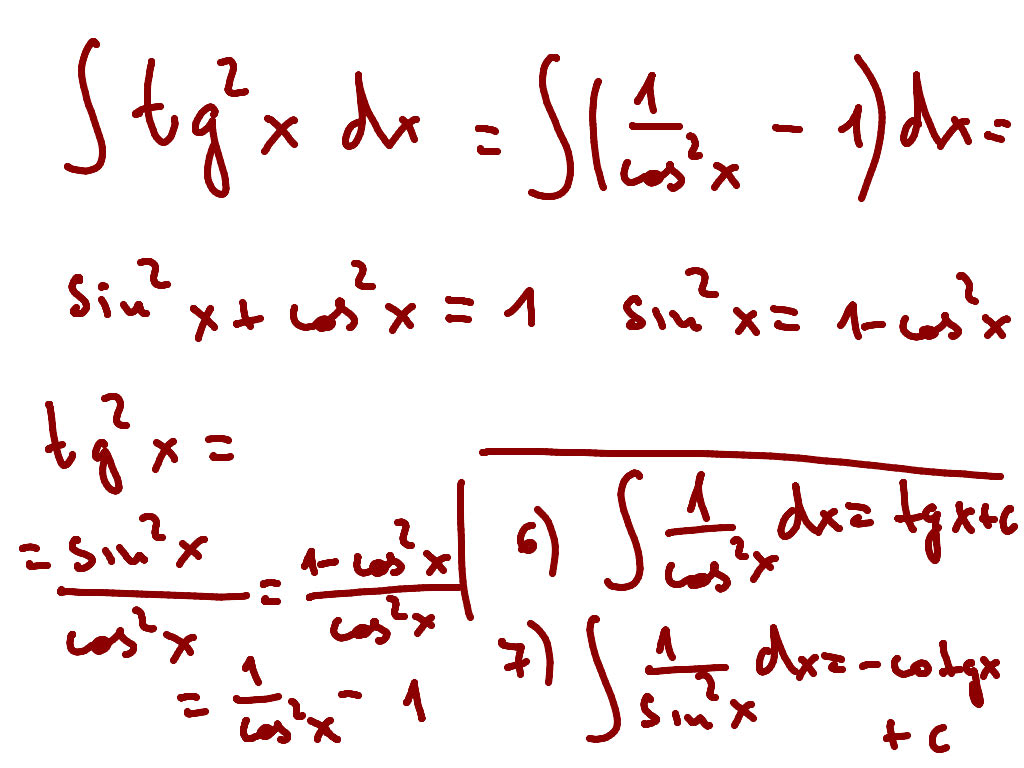 ∫ tg²x dx = ∫ (1/cos²x - 1) dx =
sin²x + cos²x = 1   sin²x = 1 - cos²x
tg²x =
= sin²x/cos²x = 1 - cos²x/cos²x
= 1/cos²x - 1
6) ∫ 1/cos²x dx = tgx + c
7) ∫ 1/sin²x dx = - cotgx
+ c